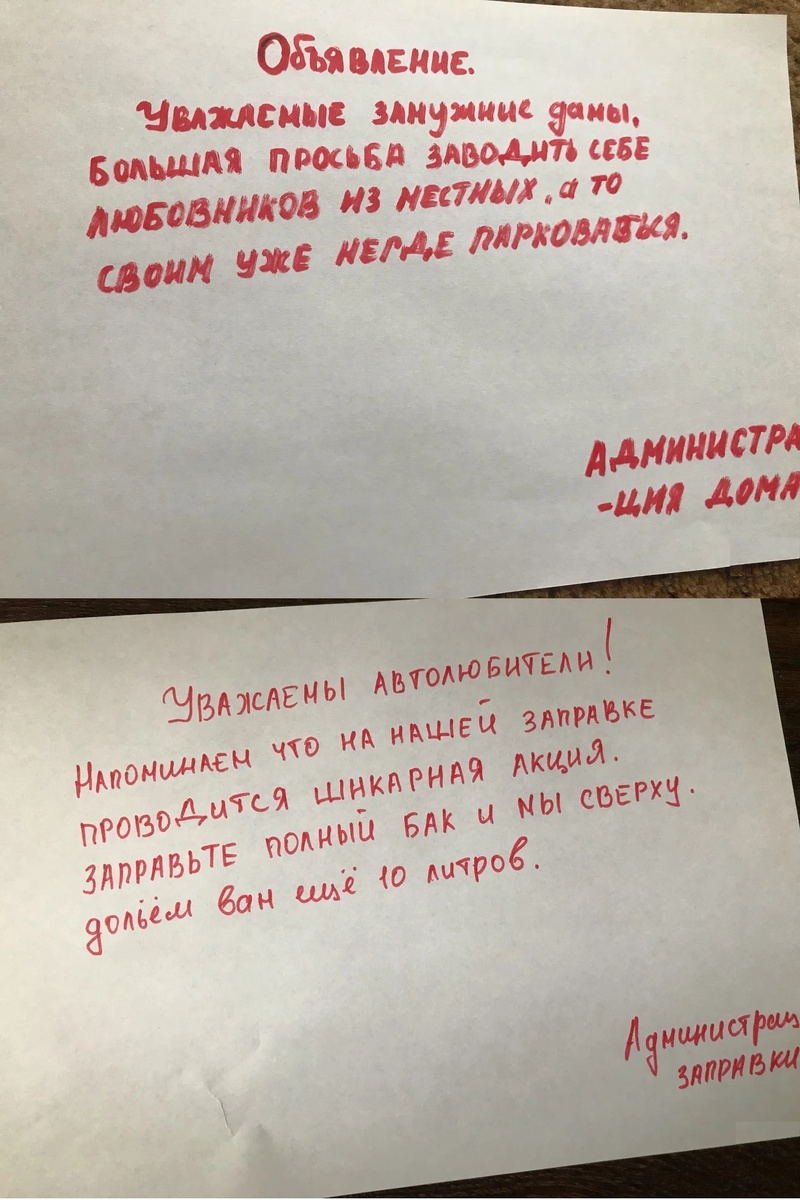 Объявление.
Уважаемые замужние дамы,
большая просьба заводить себе
любовников из местных, а то
своим уже негде парковаться.
Администра
-ция дома
Уважаемы автолюбители!
Напоминаем что на нашей заправке
проводится шикарная акция.
Заправьте полный бак и мы сверху.
дольём вам ещё 10 литров.
Администрац
заправки